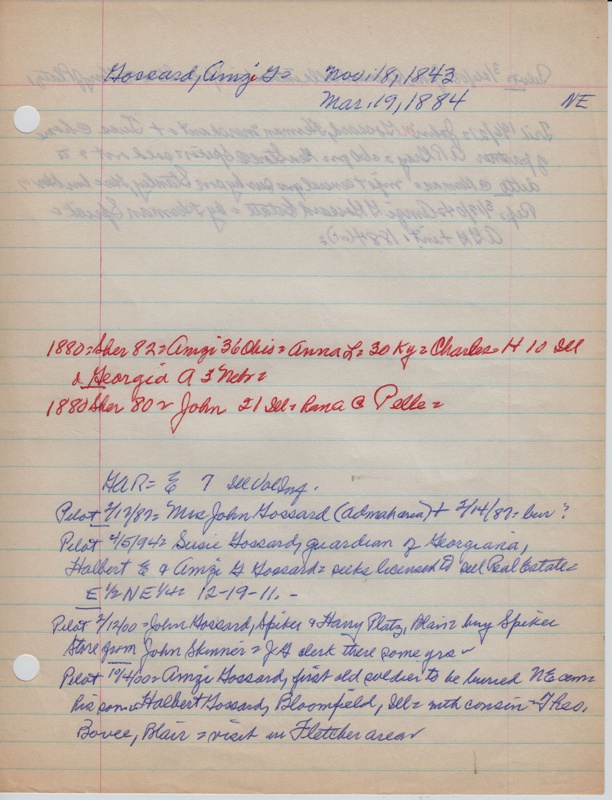 Gossard, Amzi G= Nov. 18, 1843
Mar. 19, 1884 NE
1880= Sher 82= Amzi 36 Ohio= Anna L= 30 Ky= Charles H 10 Ill
& Georgia A 3 Nebr=
1880 Sher 80= John 21 Ill= @ Pelle=
GAR= E 7 Ill Vol Inf.
Pilot 2/17/87= Mrs John Gossard (Admah area) + 2/14/87= bur?
Pilot 4/5/94= Susie Gossard, guardian of Georgiana,
Halbert E & Amzi G Gossard= seeks license to sell Real Estate=
E 1/2 NE 1/4= 12-19-11.-
Pilot 2/12/00= John Gossard, Spiker & Harry Platz, Blair= buy Spiker
Store from John Skinner= JG clerk there some yrs-
Pilot 10/4/00= Amzi Gossard, first old soldier to be buried NE cem=
his son= Halbert Gossard, Bloomfield, Ill= with cousin= Theo.
Bovee, Blair= visit in Fletcher area-